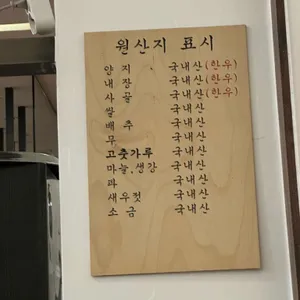 원산지 표시
양 지 국내산(한우)
내 장 국내산(한우)
사 골 국내산(한우)
쌀 국내산
배 추 국내산
무 국내산
고춧가루 국내산
마늘,생강 국내산
파 국내산
새우젓 국내산
소 금 국내산